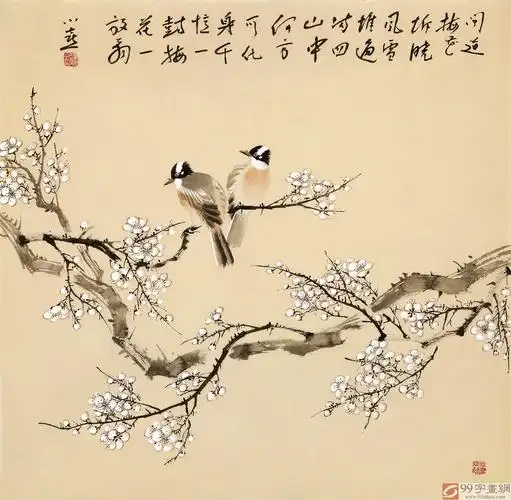 闻道
梅花
坼晓
风雪
堆遍
满四
山中
何方
可化
身千
亿一
树梅
花一
放翁
99字畫網